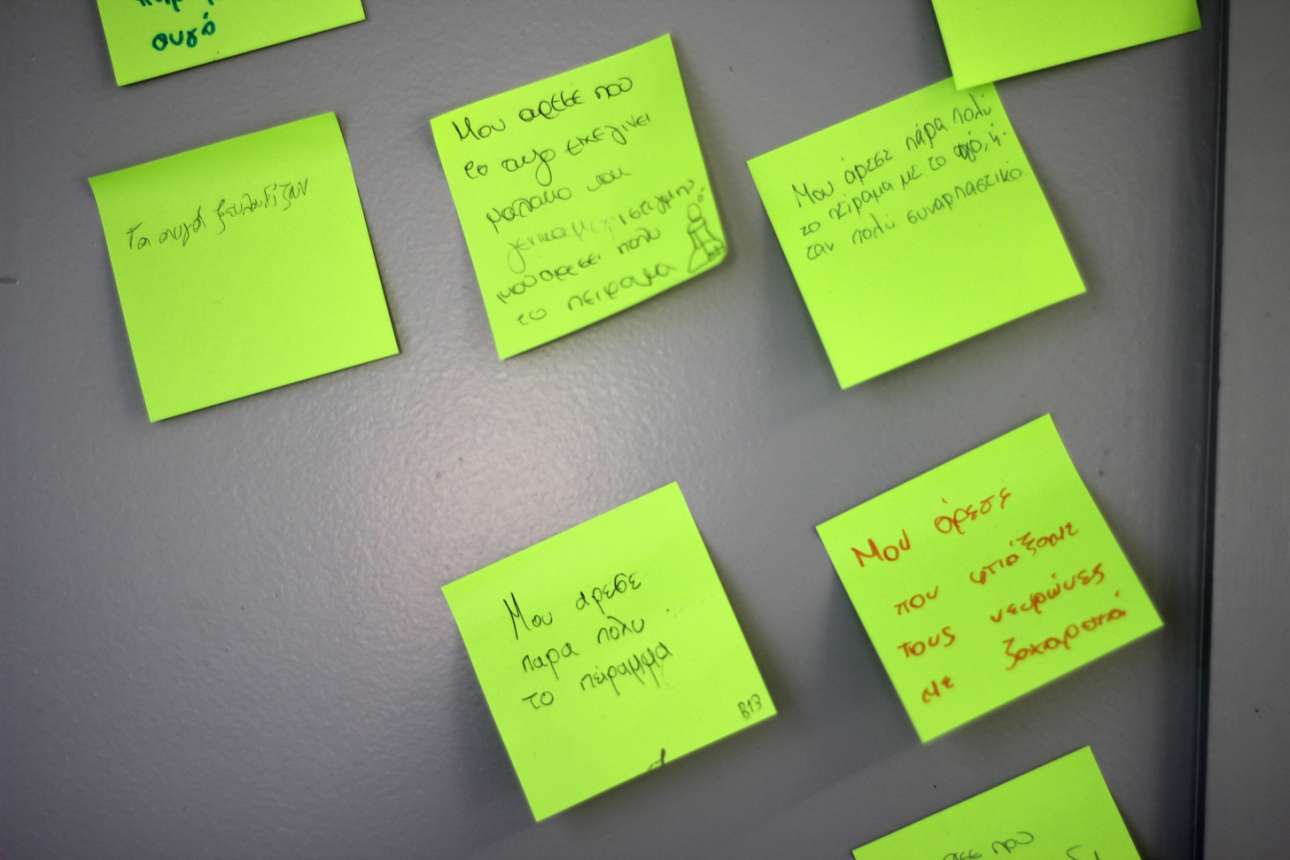 αυγό
Τα αυγά
Μου αρεσε που
το αυγο εκεγινει
μαλακο και
γενικα
μου αρεσει πολυ
το πειραμα
Μου άρεσε πάρα πολύ
το πείραμα με το αβγό, ή-
ταν πολύ συναρπαστικό.
Μου άρεσε
παρα πολυ
το πείραμμα
Β13
Μου άρεσε
που φτιάξαμε
τους νευρώνες
με ζαχαρωτά
που